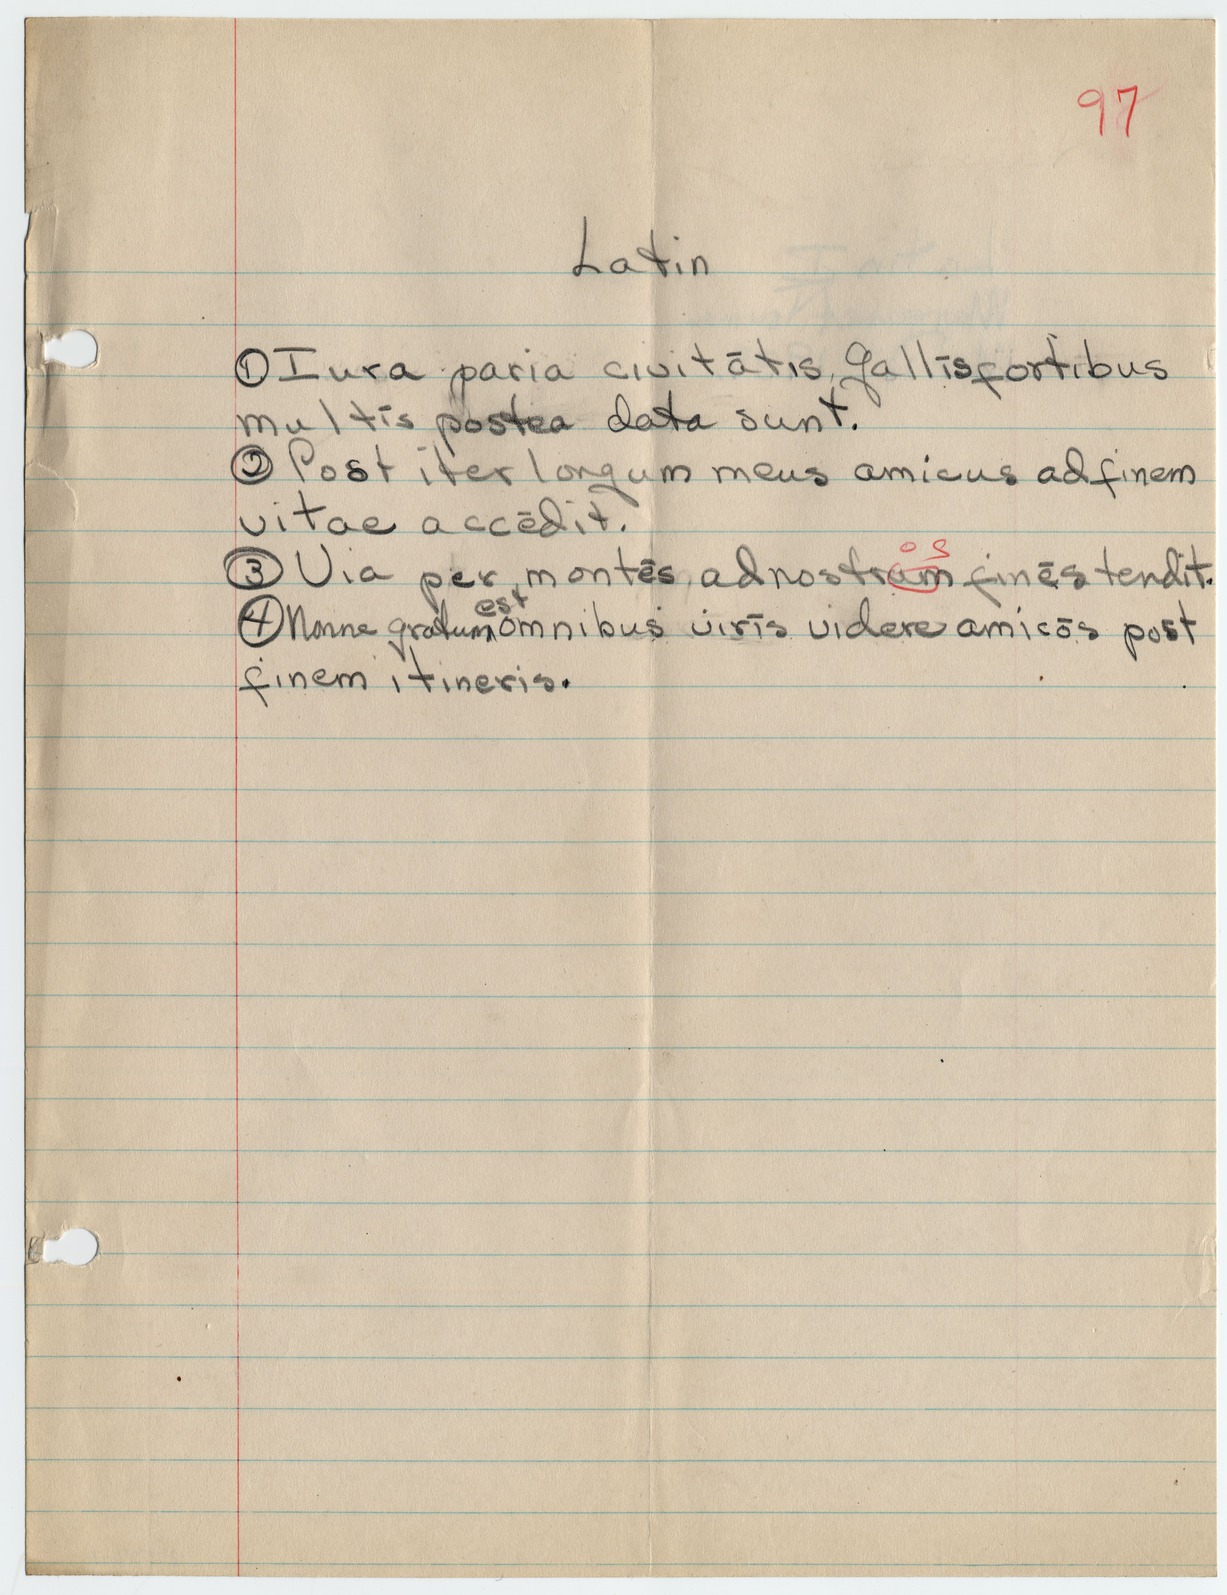 97
Latin
① Iura paria civitātis Gallīs fortibus
multīs postea data sunt.
② Post iter longum meus amicus ad finem
vitae accēdit.
ōs
③ Via per montēs ad nostram finēs tendit.
est
④ Nonne gratum omnibus virīs videre amicōs post
finem itineris.